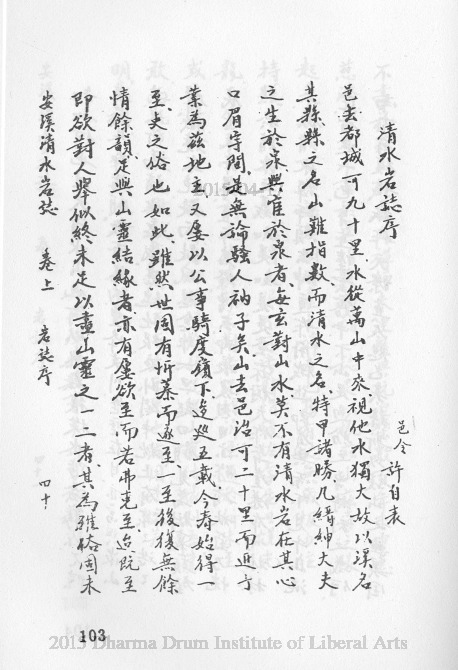 清水岩誌序
邑令 許自表
邑去都城可九十里水從萬山中來視他水獨大故以溪名
其縣縣之名山難指數而清水之名特甲諸勝凡縉紳大夫
之生於泉與宦於泉者每玄對山水莫不有清水岩在其心
口眉宇間是無論騷人衲子矣山去邑治可二十里而近予
業為茲地主又屢以公事騎度嶺下逡巡五載今春始得一
至夫之俗也如此雖然世固有忻慕而遂至一至後復無餘
情餘韻足與山靈結緣者亦有屢欲至而若弗克至迨既至
即欲對人舉似終未足以盡山靈之一二者其為雅俗固未
安溪清水岩誌 卷上 岩誌序 四十
103
2015 Dharma Drum Institute of Liberal Arts